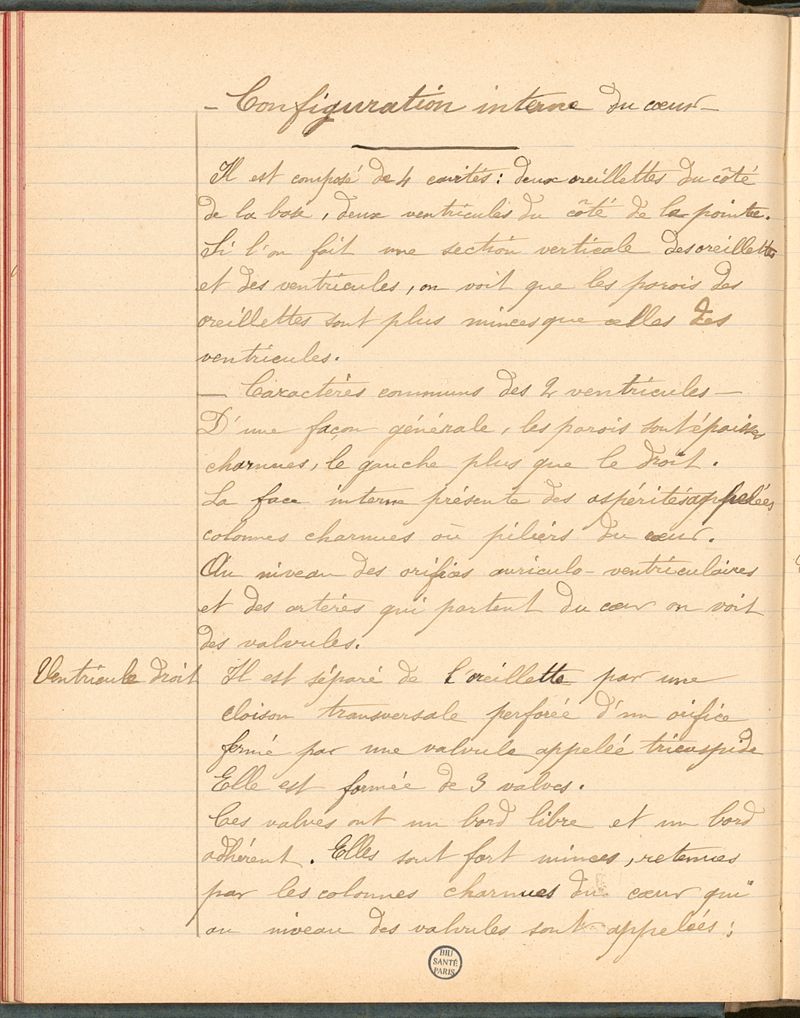 - Configuration interne du cœur -
Il est composé de 4 cavités : deux oreillettes du côté
de la base, deux ventricules du côté de la pointe.
Si l'on fait une section verticale des oreillettes
et des ventricules, on voit que les parois des
oreillettes sont plus minces que celles des
ventricules.
- Caractères communs des 2 ventricules -
D'une façon générale, les parois sont épaisses
charnues, le gauche plus que le droit.
La face interne présente des aspérités appelées
colonnes charnues où piliers du cœur.
Au niveau des orifices auriculo-ventriculaires
et des artères qui partent du cœur on voit
des valvules.
Ventricule droit Il est séparé de l'oreillette par une
cloison transversale perforée d'un orifice
fermé par une valvule appelée tricuspide
Elle est formée de 3 valves.
Ces valves ont un bord libre et un bord
adhérent. Elles sont fort minces, retenues
par les colonnes charnues du cœur qui
au niveau des valvules sont appelées :
BIU
SANTÉ
PARIS